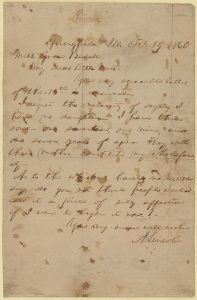 Private
Springfield, Ills. Oct 19, 1860
Miss Grace Bedell
My dear little Miss.
Your very agreeable letter
of the 15th is received
I regret the necessity of saying I
have no daughters I have three
sons one seventeen, one nine, and
one seven years of age They with
their mother, constitute my whole fam
ly
As to the whiskers having never worn
any do you not think people would
call it a piece of silly affection
if I were to begin it now?
Your very sincere well wisher
A. Lincoln